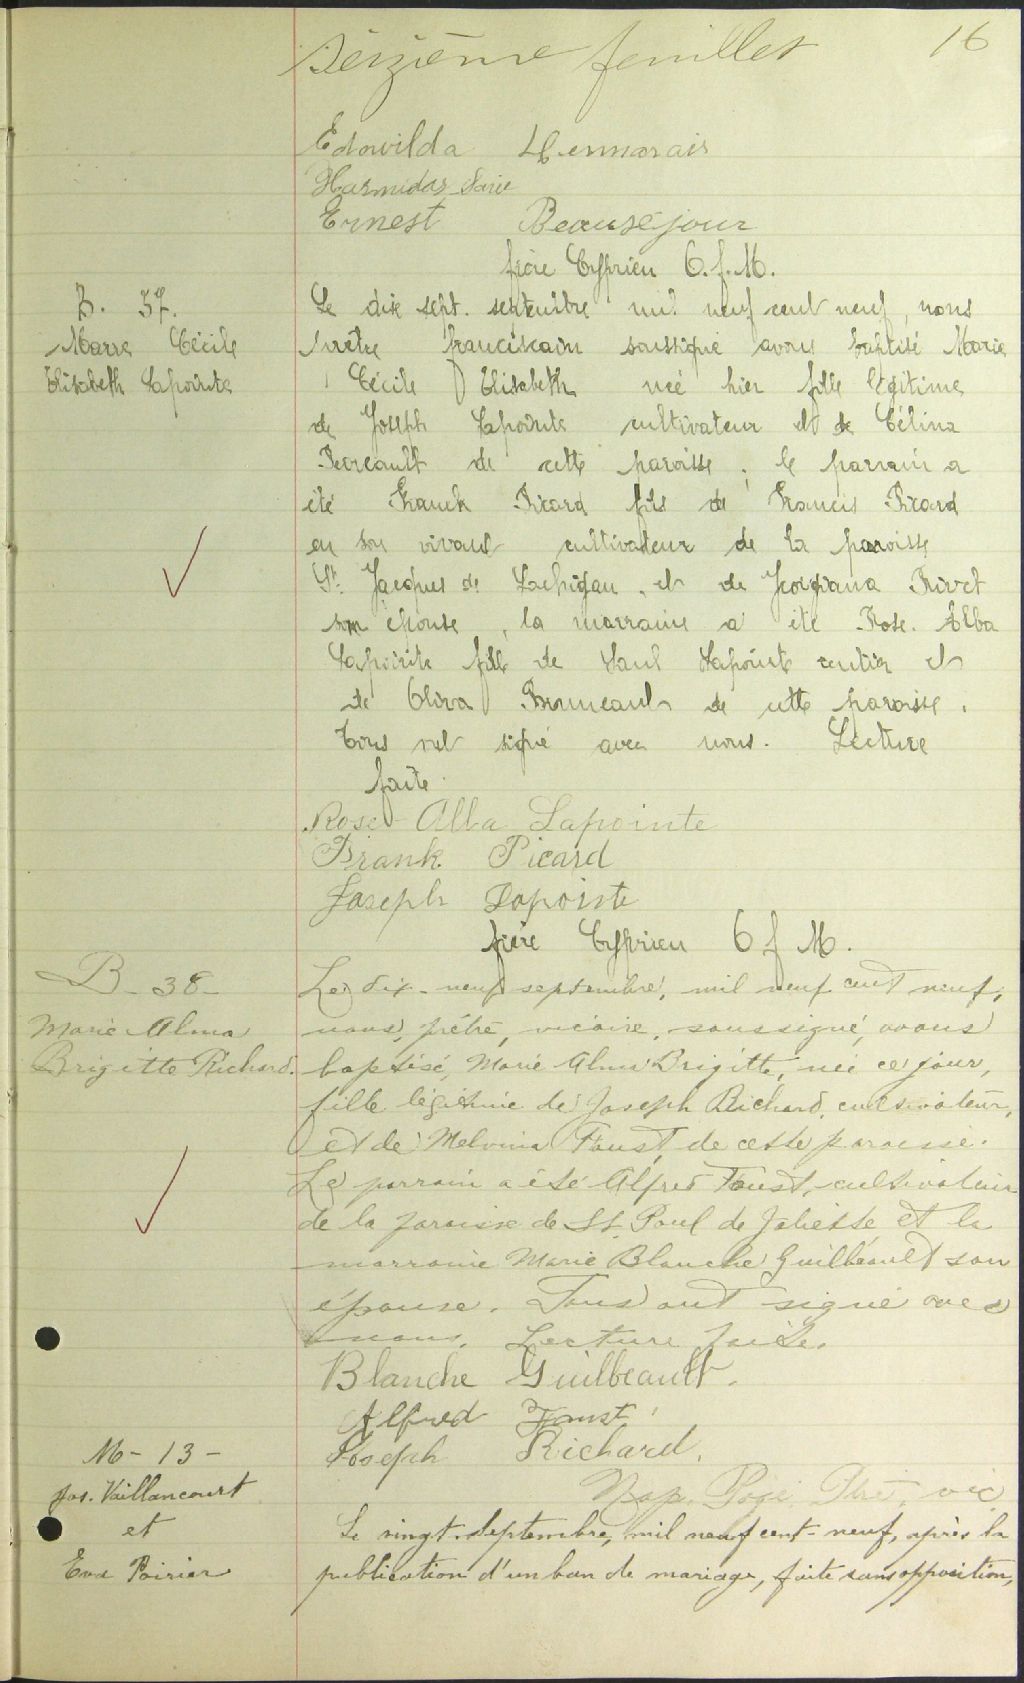 Seizième feuillet 16
Edowilda Demarais
Harmidas
Ernest Beauséjour
frère Cyprien O.f.M.
B. 37.
Marie Cécile
Elisabeth Lapointe
Le dix sept. septembre mil neuf cent neuf, nous
prêtre franciscain soussigné avons baptisé Marie
Cécile Elisabeth née hier fille légitime
de Joseph Lapointe cultivateur et de Célina
Perreault de cette paroisse. le parrain a
été Franck Picard fils de Francis Picard
en son vivant cultivateur de la paroisse
St. Jacques de Lachigan, et de Georgiana Rivet
son épouse, la marraine a été Rose. Alba
Lapointe fille de Paul Lapointe rentier et
de Oliva Bruneault de cette paroisse.
Tous ont signé avec nous. Lecture
faite.
Rose Alba Lapointe
Frank Picard
Joseph Lapointe
frère Cyprien O f M.
B - 38 -
Marie Alma
Brigitte Richard.
Le dix-neuf septembre, mil neuf cent neuf,
nous, prêtre, vicaire, soussigné, avons
baptisé, Marie Alma Brigitte, née ce jour,
fille légitime de Joseph Richard, cultivateur,
et de Melvina Faust, de cette paroisse.
Le parrain a été Alfred Faust, cultivateur
de la paroisse de St. Paul de Joliette et la
marraine Marie Blanche Guilbeault son
épouse. Tous ont signé avec
nous. Lecture faite.
Blanche Guilbeault.
Alfred Faust
Joseph Richard.
Nap. Ptre, vic
M - 13 -
Jos. Vaillancourt
et
Eva Poirier
Le vingt-septembre, mil neuf cent-neuf, après la
publication d'un ban de mariage, faite sans opposition,